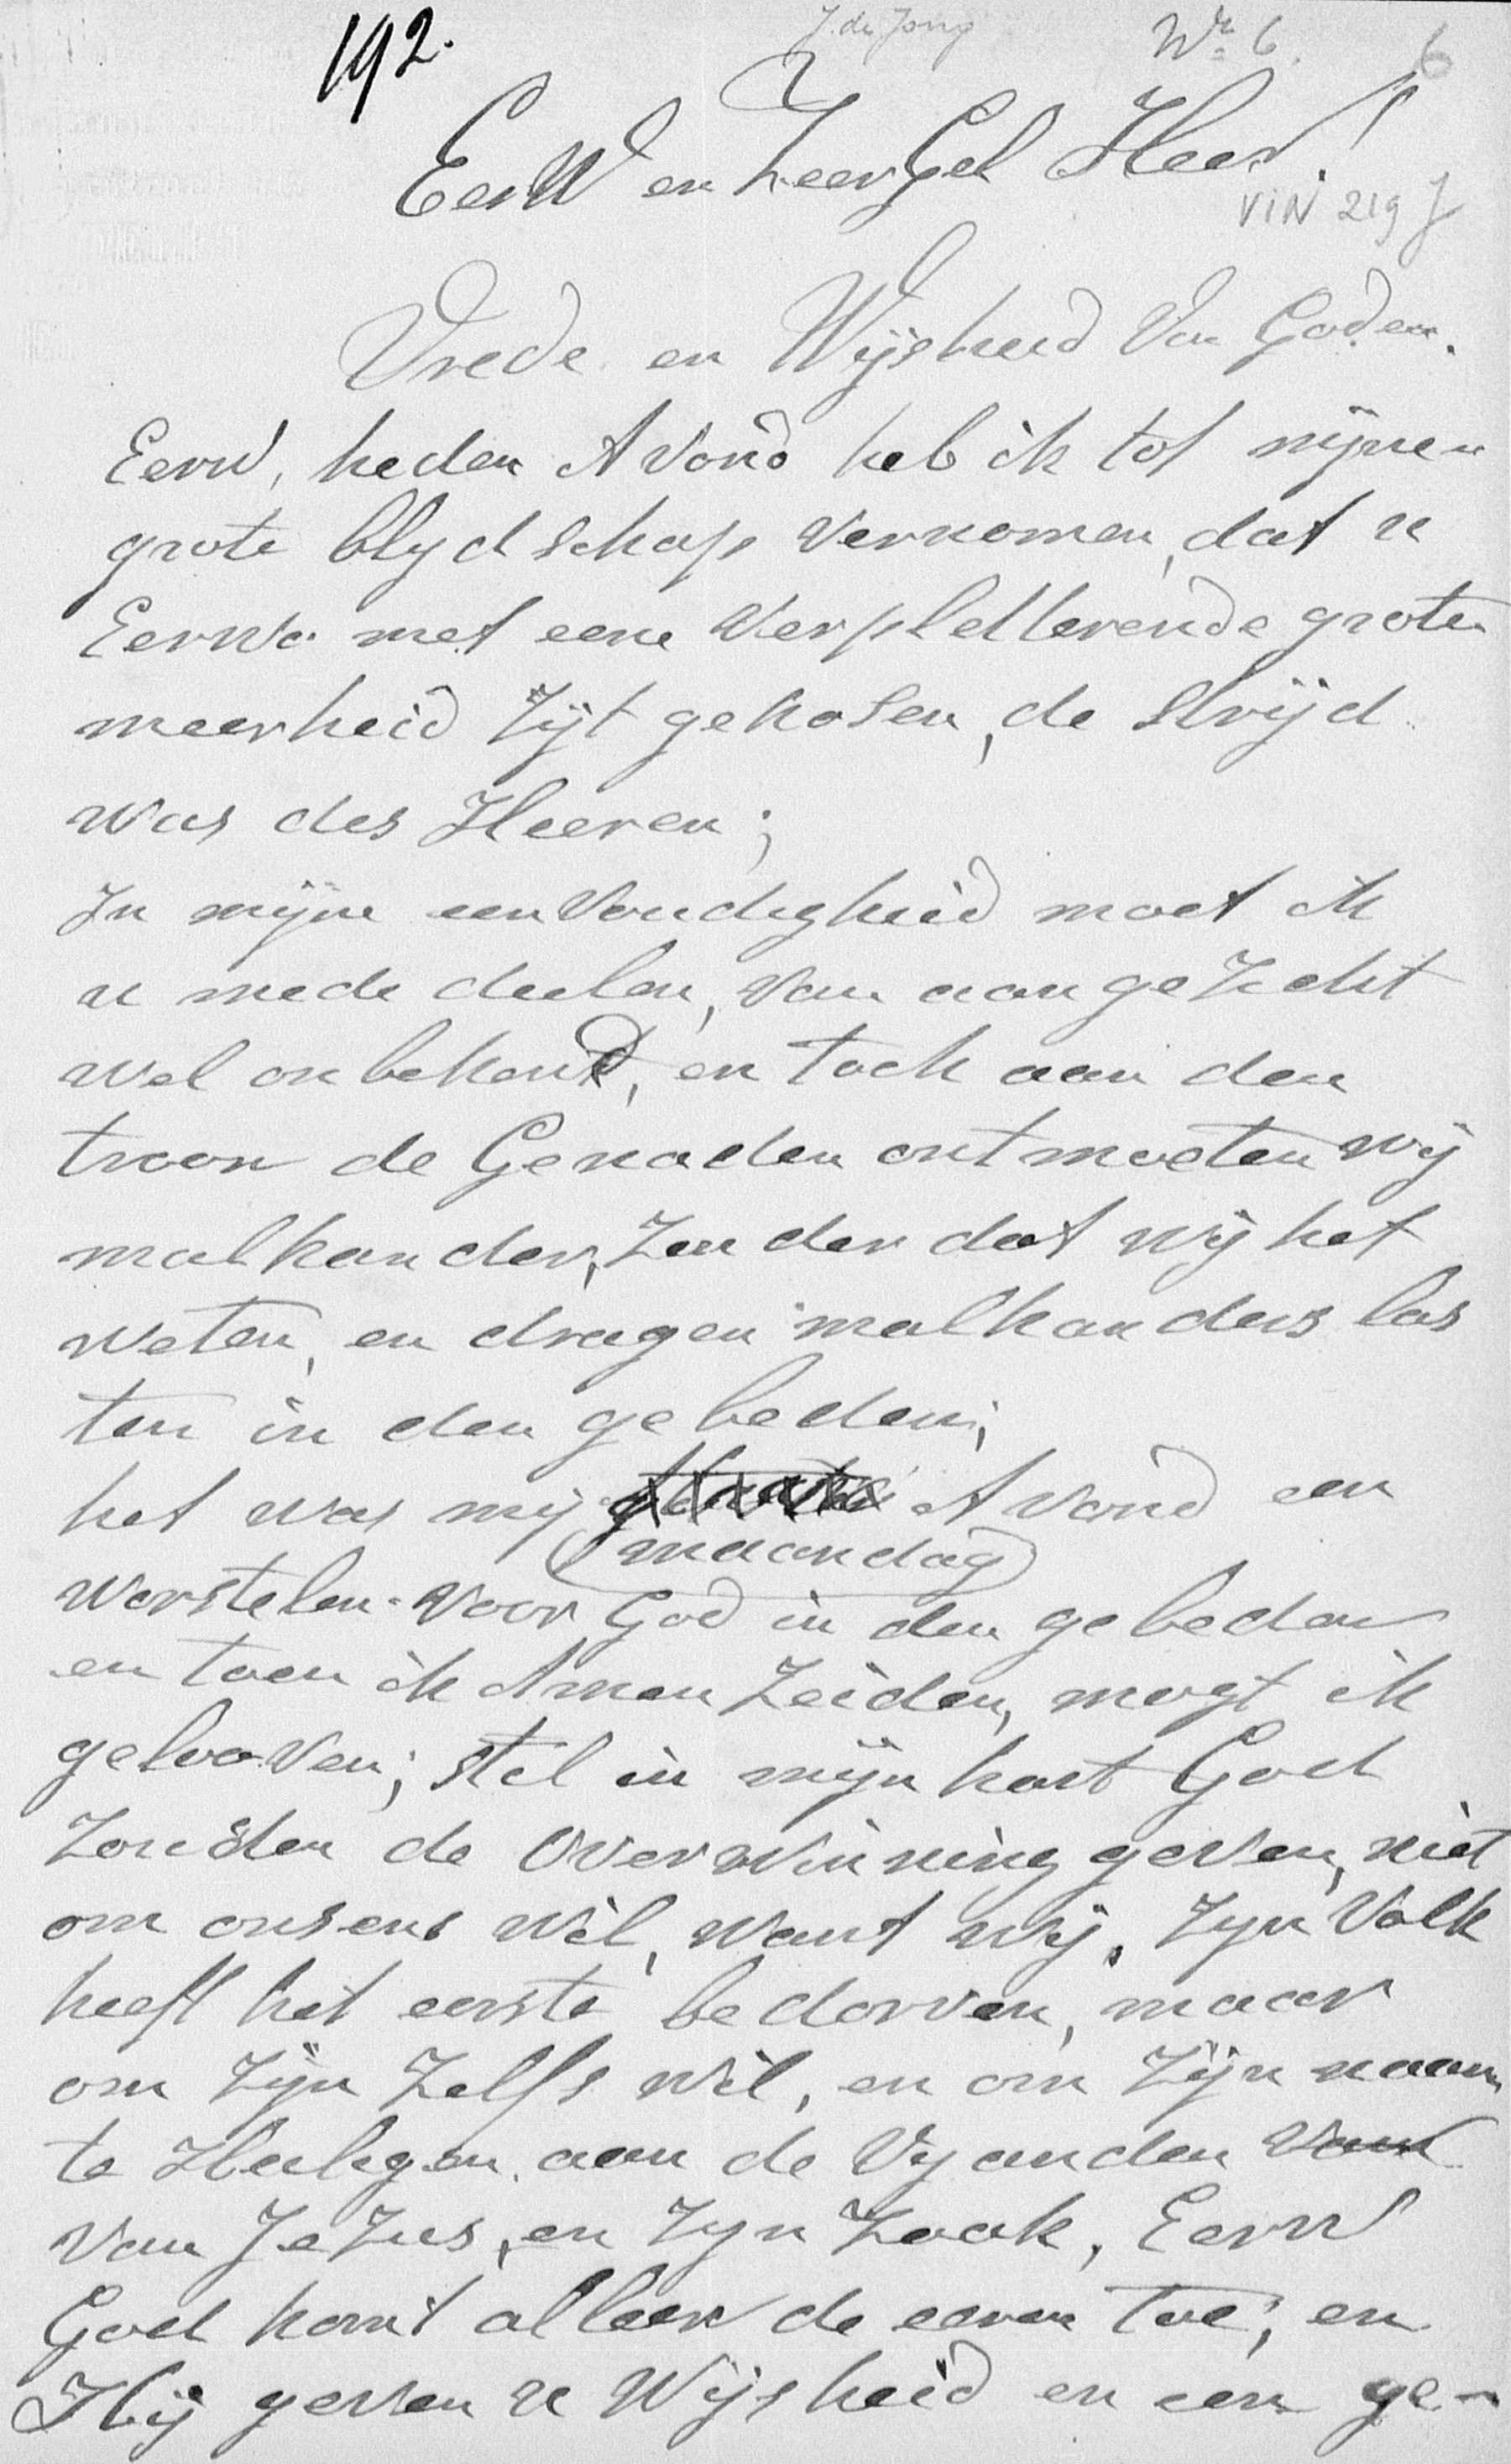 192.
J. de Jong No 6. 6
EerW en ZeerGel Heer!
VIN 219 J
Vrede en Wijsheid Van God en.
Eerw, heden AVond heb ik tot mijnen
grote blydschap Vernomen, dat u
Eerw. met eene Verpletterende grote
meerheid Zijt gekosen, de strijd
was des Heeren;
In mijne eenVoudigheid moet ik
u mede deelen, Van aangeZicht
wel onbekend, en toch aan den
troon de Genaden ontmoeten wij
malkander, Zonder dat wij het
weten, en dragen malkanders las
ten in den gebeden;
het was mij AVond een
(maandag)
worstelen Voor God in den gebeden
en toen ik Amen Zeiden, mogt ik
gelooVen; stil in mijn hart God
Zouden de OverWinning geven, niet
om onsens wil, want wij, Zyn Volk
heeft het eerste bedorven, maar
om Zijn Zelfs wil, en om Zijn naam
te Heiligen aan de Vyanden Van
Van JeZus, en Zyn Zaak, Eerw
God komt alleen de eeren toe; en
Hij geven u Wijsheid en een ge-